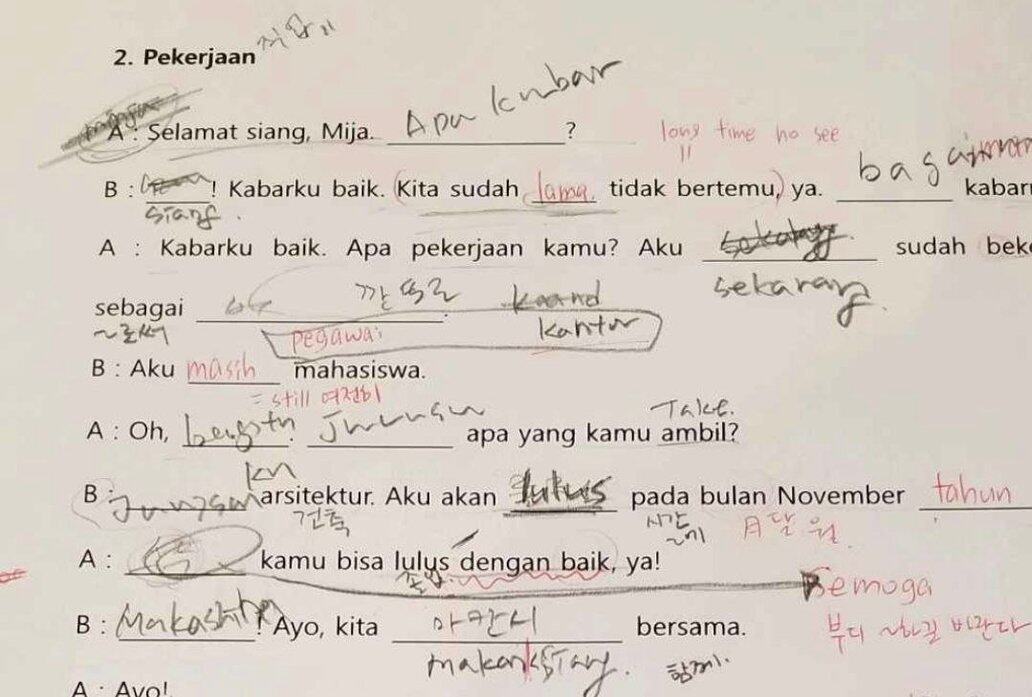 2. Pekerjaan 직업 "
A : Selamat siang, Mija. Apa kabar ?
long time no see
B : ! Kabarku baik. (Kita sudah lama. tidak bertemu,) ya. kabar
siang.
A : Kabarku baik. Apa pekerjaan kamu? Aku sudah bek
sekarang.
sebagai 깐또르
~로써 pegawai kantor
B : Aku masih mahasiswa.
= still 여전히
Take.
A : Oh, apa yang kamu ambil?
ku
B : arsitektur. Aku akan lulus pada bulan November tahun
건축 시간 ~에 月 달 월.
A : kamu bisa lulus dengan baik, ya!
졸업. Semoga
B : Makasih ! Ayo, kita 마칸시 bersama.
부디 ~하길 바란다
makanksiang. 함께.
A : Ayo!